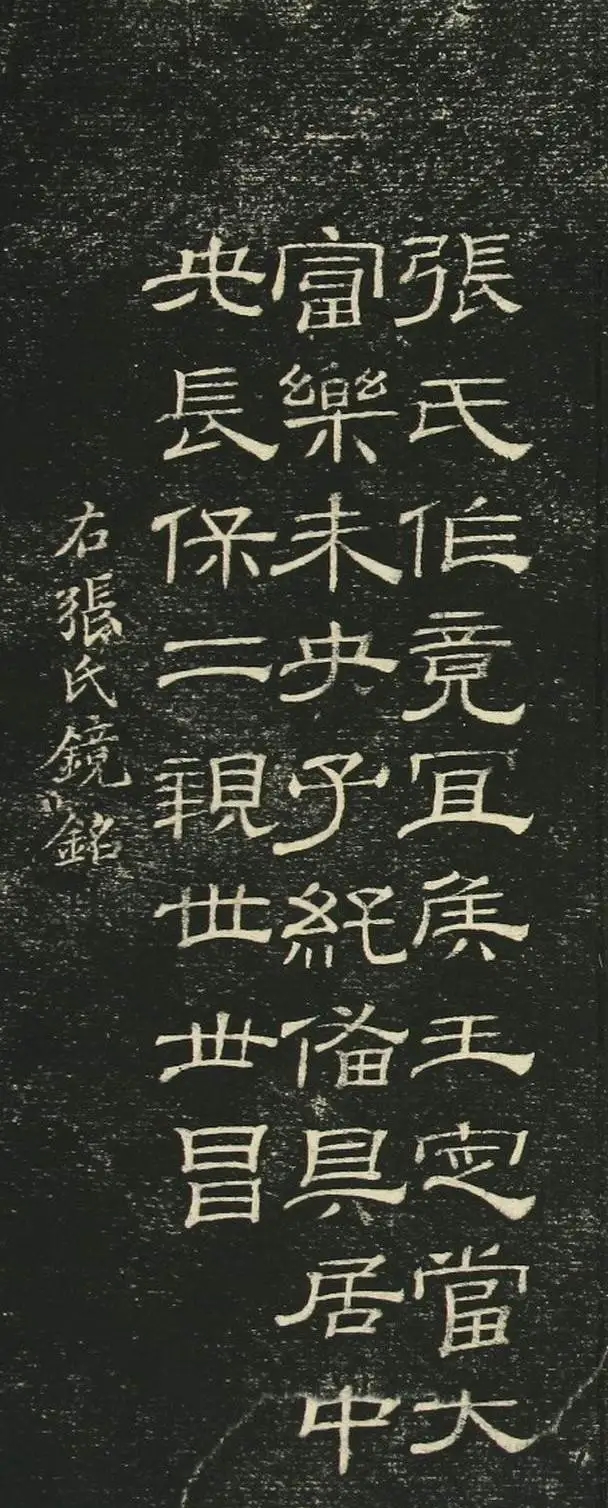 張氏作竟宜侯王家當大
富樂未央子孫備具居中
央長保二親世世昌
右張氏鏡銘